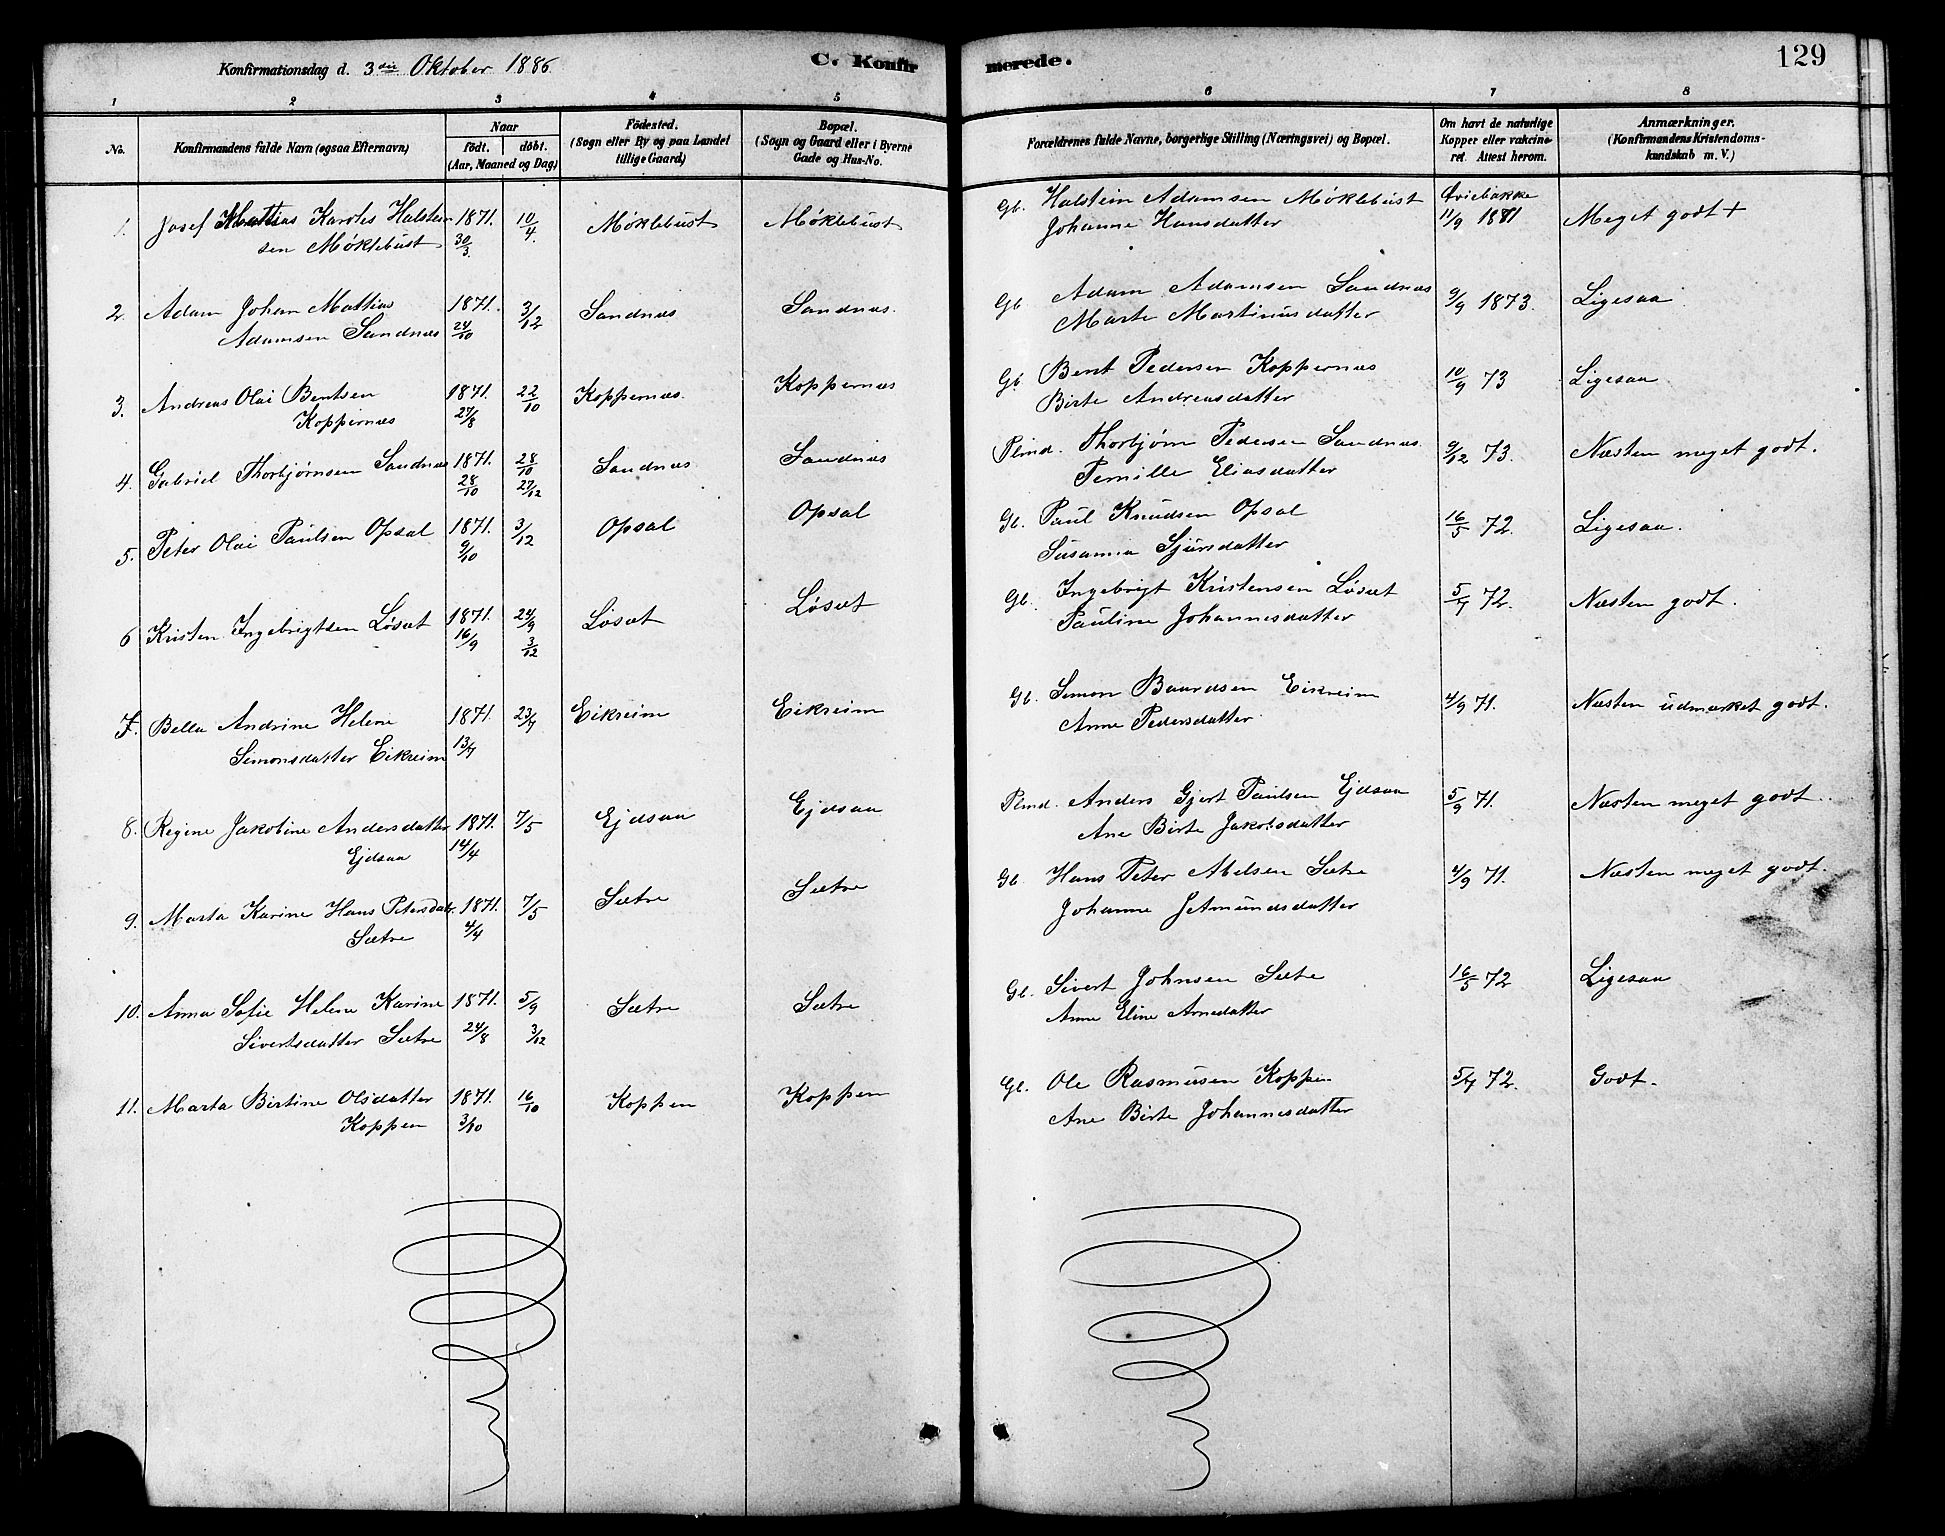 Konfirmationsdag d. 3die Oktober 1886
C. Konfirmerede.
129
1 2 3 4 5 6 7 8
No.
Konfirmandens fulde Navn (ogsaa Efternavn)
Naar
født. døbt.
(Aar, Maaned og Dag)
Fødested.
(Sogn eller By og paa Landet
tillige Gaard)
Bopæl.
(Sogn og Gaard eller i Byerne
Gade og Hus-No.
Forældrenes fulde Navne, borgerlige Stilling (Næringsvei) og Bopæl.
Om havt de naturlige
Kopper eller vakcine-
ret. Attest herom.
Anmærkninger.
(Konfirmandens Kristendoms-
kundskab m. V.)
1. Josef Mattias Karoles Halstein 1871. 10/4. Møklebust Møklebust Gb. Halstein Adamsen Møklebust
sen Møklebust 30/3. Johanne Hansdatter 11/9 1881 Meget godt +
2. Adam Johan Mattias 1871. 3/12 Sandnæs Sandnæs. Gb Adam Adamsen Sandnæs 9/9 1873. Ligesaa
Adamsen Sandnæs 24/10 Marte Martinusdatter
3. Andreas Olai Bentsen 1871. 22/10 Koppernæs. Koppernæs Gb. Bent Pedersen Koppernæs 10/9 73 Ligesaa
Koppernæs 27/8 Birte Andreasdatter
4. Gabriel Thorbjørnsen Sandnæs 1871. 28/10 Sandnæs Sandnæs Plmd. Thorbjørn Pedersen Sandnæs. 9/12 73. Næsten meget godt.
28/10 27/12 Pernille Eliasdatter
5. Peter Olai Paulsen Opsal 1871. 3/12 Opsal Opsal Gb. Paul Knudsen Opsal 16/5 72. Ligesaa.
9/10 Susanna Sjursdatter
6 Kristen Ingebrigtsen Løsæt 1871. 24/9 Løsæt Løsæt Gb. Ingebrigt Kristensen Løsæt 5/7 72. Næsten godt.
16/9 3/12 Pauline Johannesdatter
7. Bella Andrine Helene 1871. 23/7 Eikreim Eikreim Gb. Simon Baardsen Eikreim 4/9 71. Næsten udmærket godt.
Simonsdatter Eikreim 13/7 Anne Pedersdatter
8. Regine Jakobine Andersdatter 1871. 7/5 Ejdsaa Ejdsaa Plmd. Anders Gjert Paulsen Ejdsaa 5/9 71. Næsten meget godt.
Ejdsaa 14/4 Ane Birte Jakobsdatter
9. Marta Karine Hans Petersdatr. 1871. 7/5 Sætre Sætre Gb. Hans Peter Abelsen Sætre 4/9 71. Næsten meget godt.
Sætre 4/4 Johanne Jetmundsdatter
10. Anna Sofie Helene Karine 1871. 5/9 Sætre Sætre Gb. Sivert Johnsen Sætre 16/5 72 Ligesaa
Sivertsdatter Sætre 24/8 3/12 Anne Eline Arnedatter
11. Marta Birtine Olsdatter 1871. 16/10 Koppen Koppen Gb. Ole Rasmusen Koppen 5/7 72. Godt.
Koppen 3/10 Ane Birte Johannesdatter